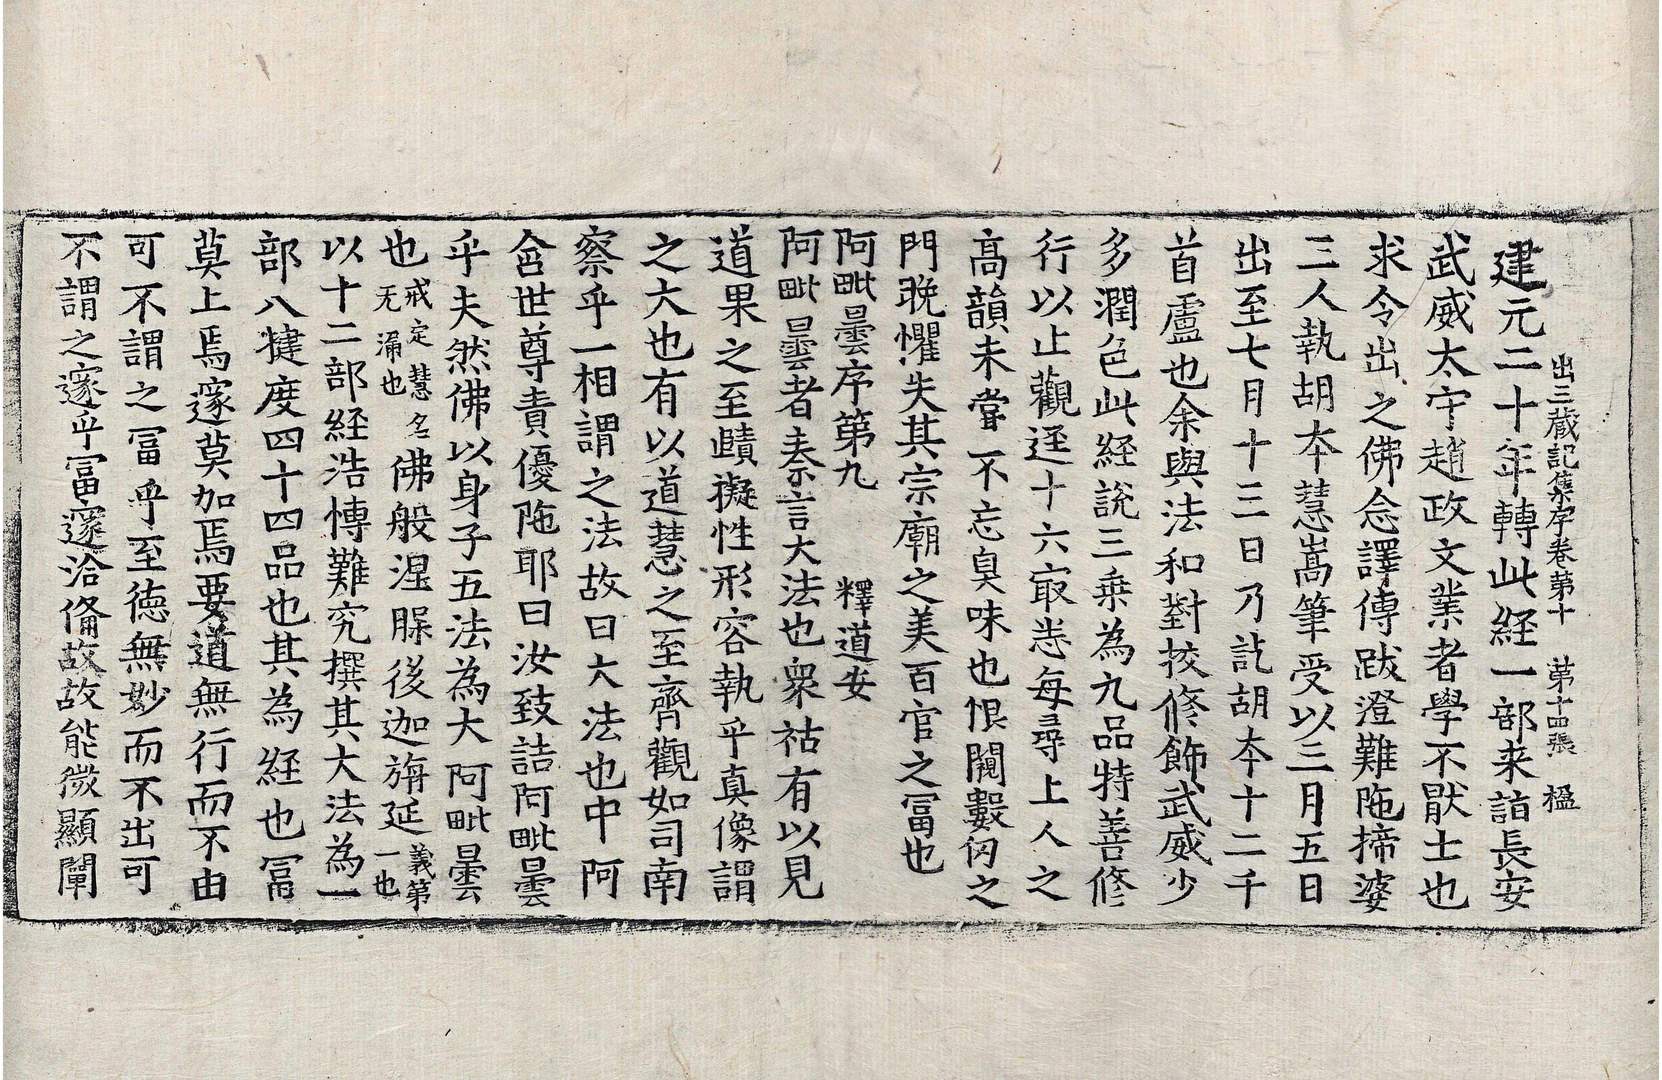 出三藏記集序卷第十　第十四張　楹
建元二十年轉此經一部来詣長安
武威太守趙政文業者學不猒士也
求令出之佛念譯傳跋澄難陁揥婆
三人執胡本慧嵩筆受以三月五日
出至七月十三日乃訖胡本十二千
首盧也余與法和對挍修飾武威少
多潤色此経說三乗為九品特善修
行以止觀逕十六㝡悉每尋上人之
高韻未甞不忘臭味也恨闚數仞之
門晚懼失其宗廟之美百官之冨也
阿毗曇序第九　釋道安
阿毗曇者秦言大法也衆祐有以見
道果之至賾擬性形容執乎真像謂
之大也有以道慧之至齊觀如司南
察乎一相謂之法故曰大法也中阿
含世尊責優陁耶曰汝致詰阿毗曇
乎夫然佛以身子五法為大阿毗曇
也戒定慧名无漏也佛般涅槃後迦旃延義第一也
以十二部経浩博難究撰其大法為一
部八犍度四十四品也其為経也冨
莫上焉邃莫加焉要道無行而不由
可不謂之冨乎至德無妙而不出可
不謂之邃乎冨邃洽俻故故能微顯闡